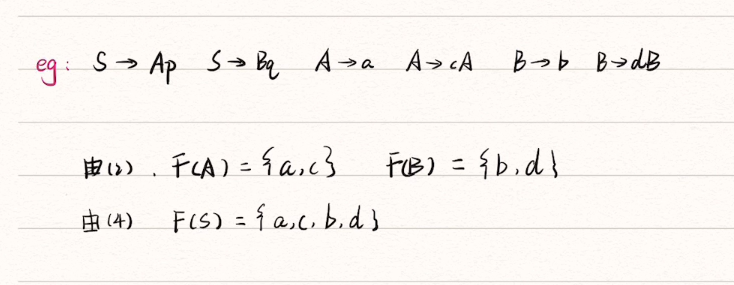 eg: S → Ap S → Bq A → a A → cA B → b B → dB
由(2). F(A) = {a,c} F(B) = {b,d}
由(4) F(S) = {a,c,b,d}